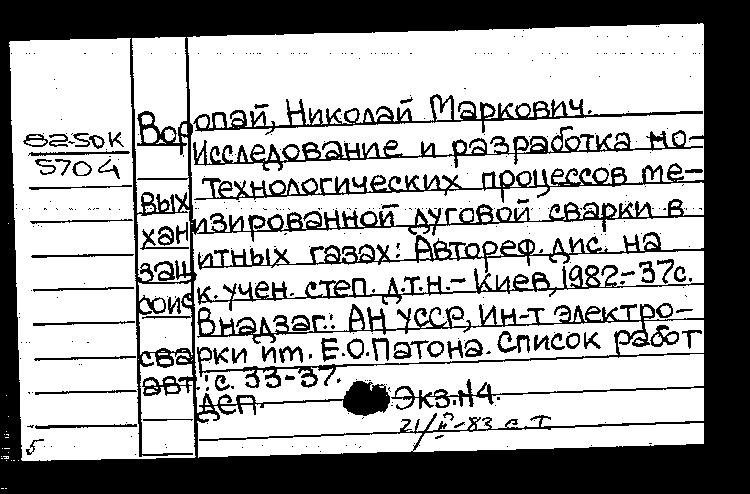 Воропай, Николай Маркович.
82-50К
5704
Исследование и разработка но-
вых технологических процессов ме-
ханизированной дуговой сварки в
защитных газах: Автореф. дис. на
соиск. учен. степ. д.т.н.- Киев, 1982.- 37с.
В надзаг.: АН УССР, Ин-т электро-
сварки им. Е.О.Патона. Список работ
авт.: с. 33-37.
ДСП. Экз.№4.
21/II-83 с.т.
5